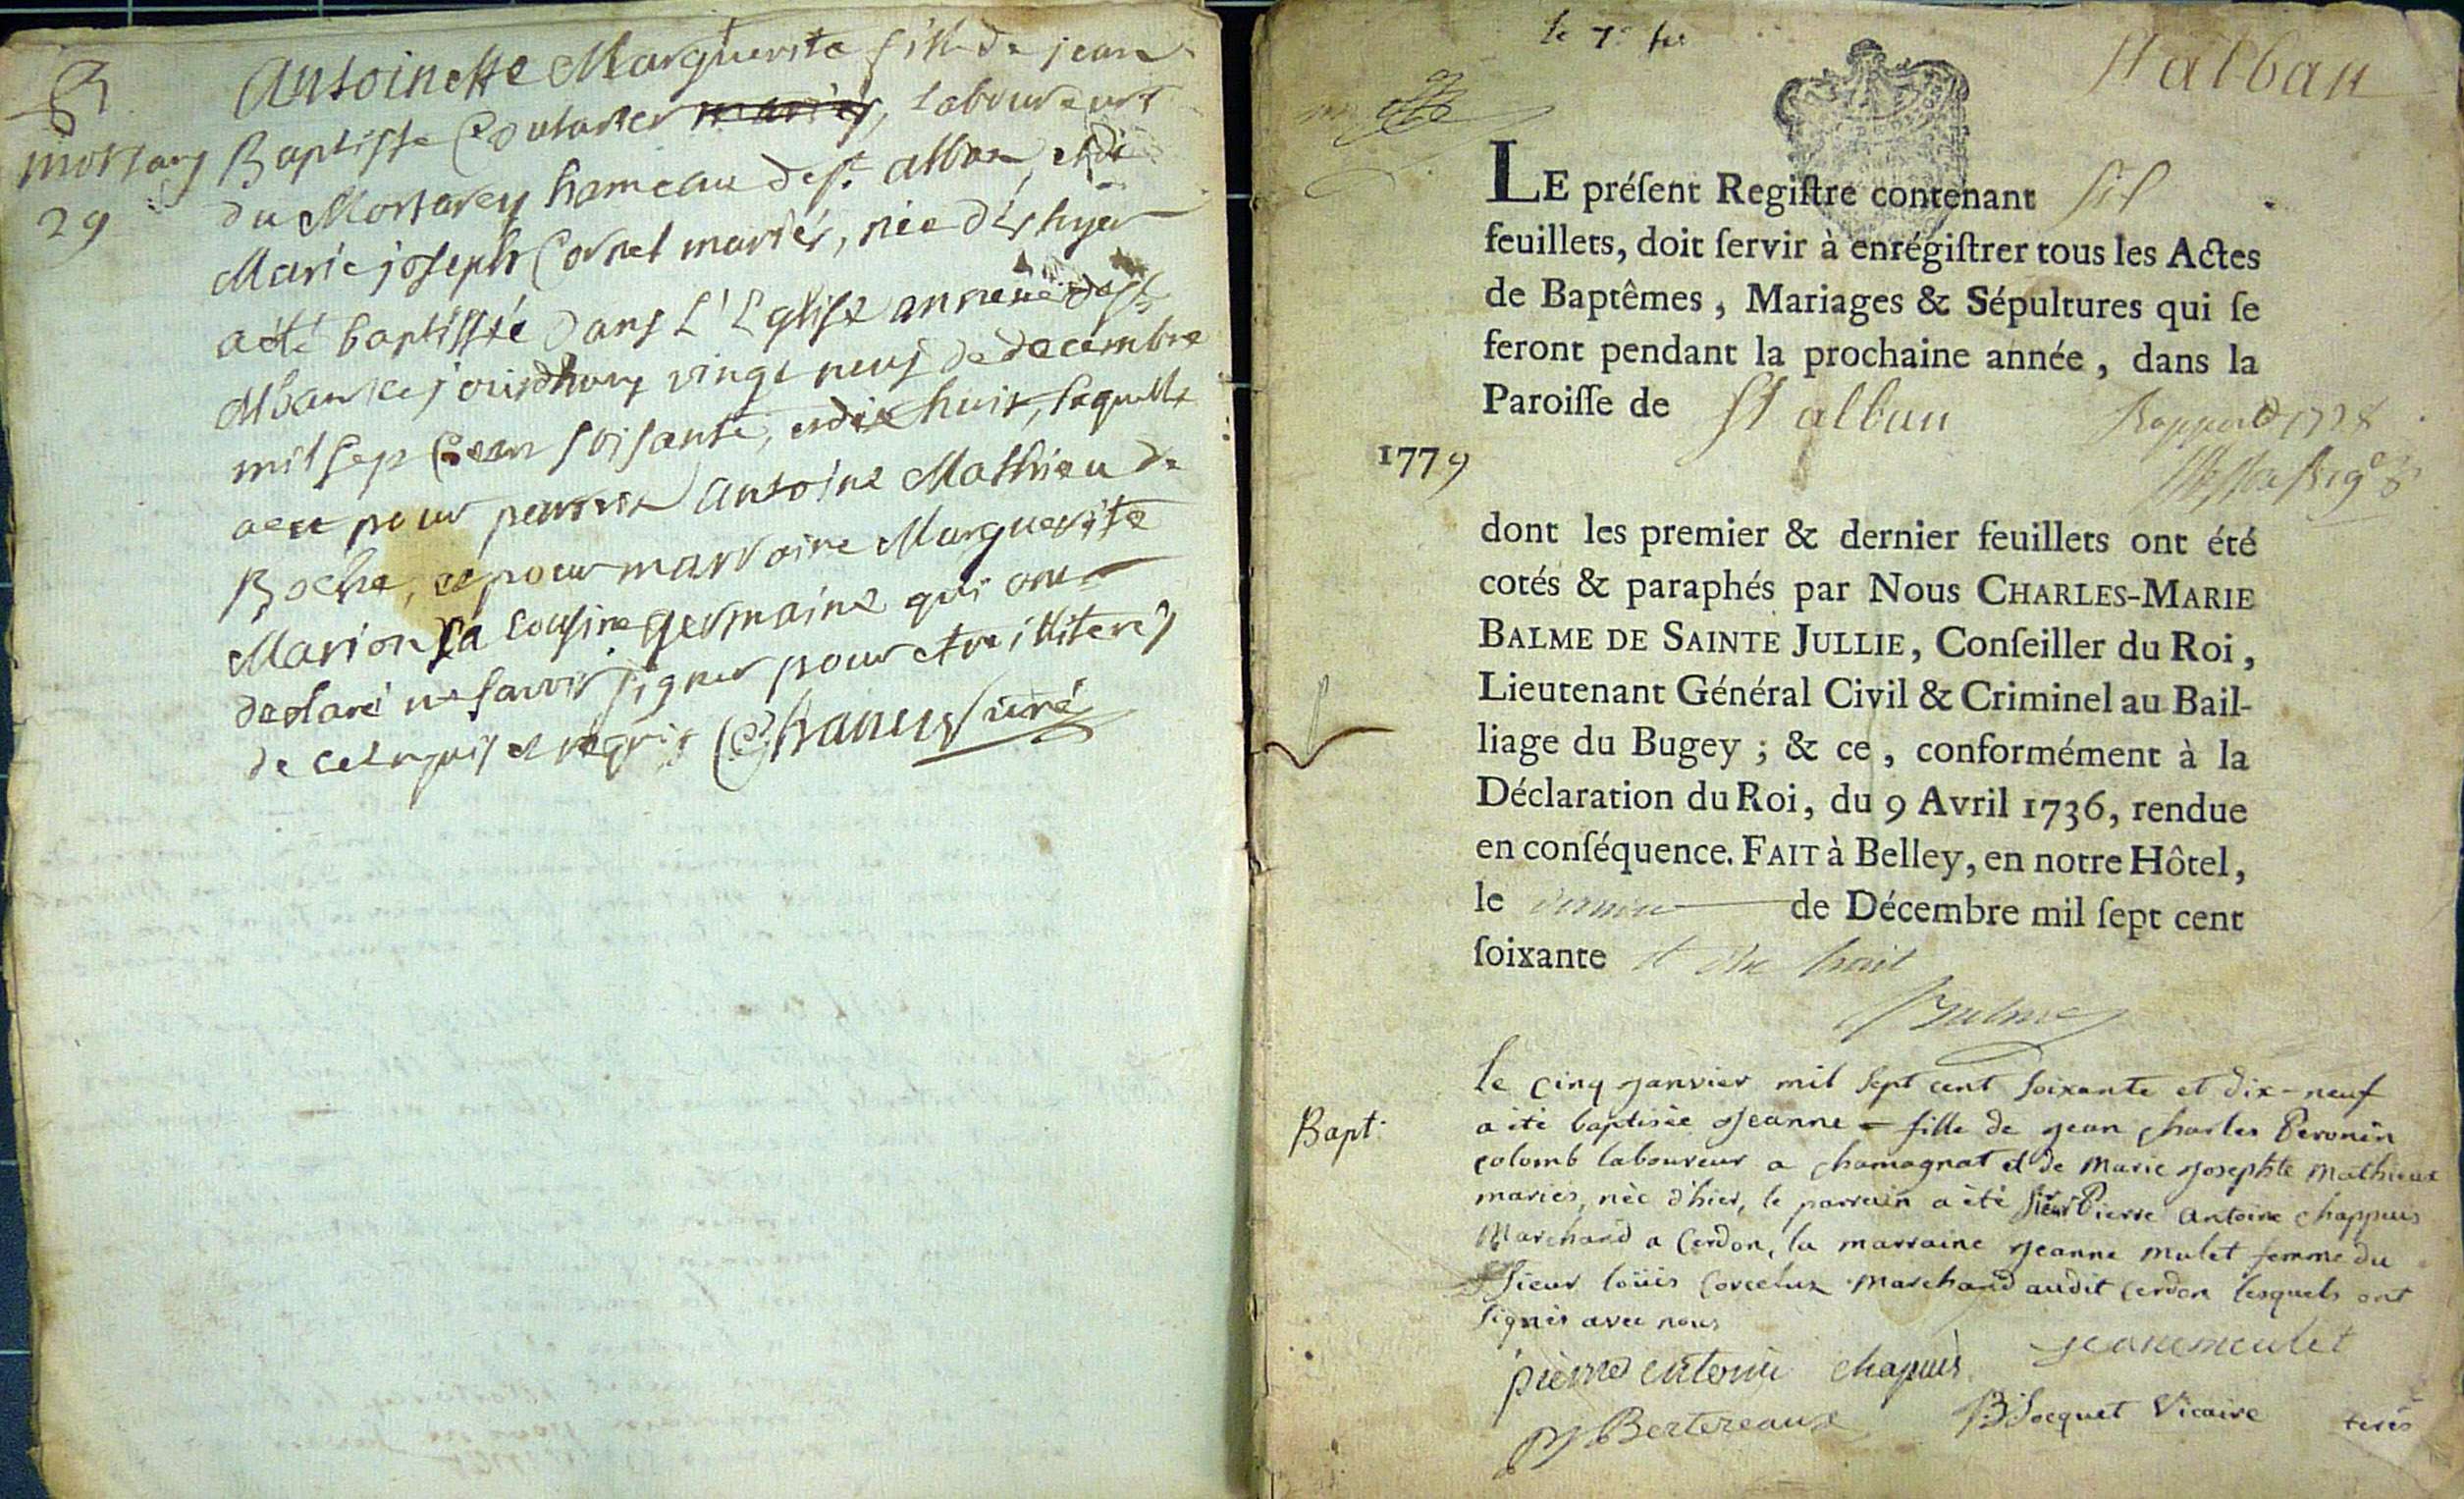 B
mortarey
29
Antoinette Marguerite fille de jean
Baptiste Coutarier mariés, laboureurs
du Mortarey hameau de st. alban, et de
Marie joseph Cornet mariés, née dés hyer
a été baptissée dans L'Eglise annexe de st
Alban ce jourdhuy vingt neuf de decembre
mil sept Cent soisante, et dix huit, laquelle
a eu pour parrin Antoine Mathieu de
Roche, et pour marraine Marguerite
Marion sa cousine germaine qui ont
declaré ne savoir signer pour etre illiterés
de ce enquis et requis Chanel curé
le 7e
St alban
LE préſent Regiſtre contenant ſix
feuillets, doit ſervir à enrégiſtrer tous les Actes
de Baptêmes, Mariages & Sépultures qui ſe
feront pendant la prochaine année, dans la
Paroiſſe de St alban
1779
dont les premier & dernier feuillets ont été
cotés & paraphés par Nous CHARLES-MARIE
BALME DE SAINTE JULLIE, Conſeiller du Roi,
Lieutenant Général Civil & Criminel au Bail-
liage du Bugey ; & ce, conformément à la
Déclaration du Roi, du 9 Avril 1736, rendue
en conſéquence. FAIT à Belley, en notre Hôtel,
le dernier de Décembre mil ſept cent
ſoixante et dix huit
Balme
Bapt.
Le cinq janvier mil sept cent soixante et dix-neuf
a été baptisée Jeanne fille de jean charles Peronin
colomb laboureur a chamagnat et de marie josephte mathieux
mariés, née d'hier, le parrain a été sieur Pierre antoine chappuis
Marchand a Cerdon, la marraine jeanne mulet femme du
Sieur loüis Corcelux marchand audit Cerdon lesquels ont
signés avec nous
pierre entonie chapuis jeanemeulet
Bertereaux B Jocquet Vicaire terés